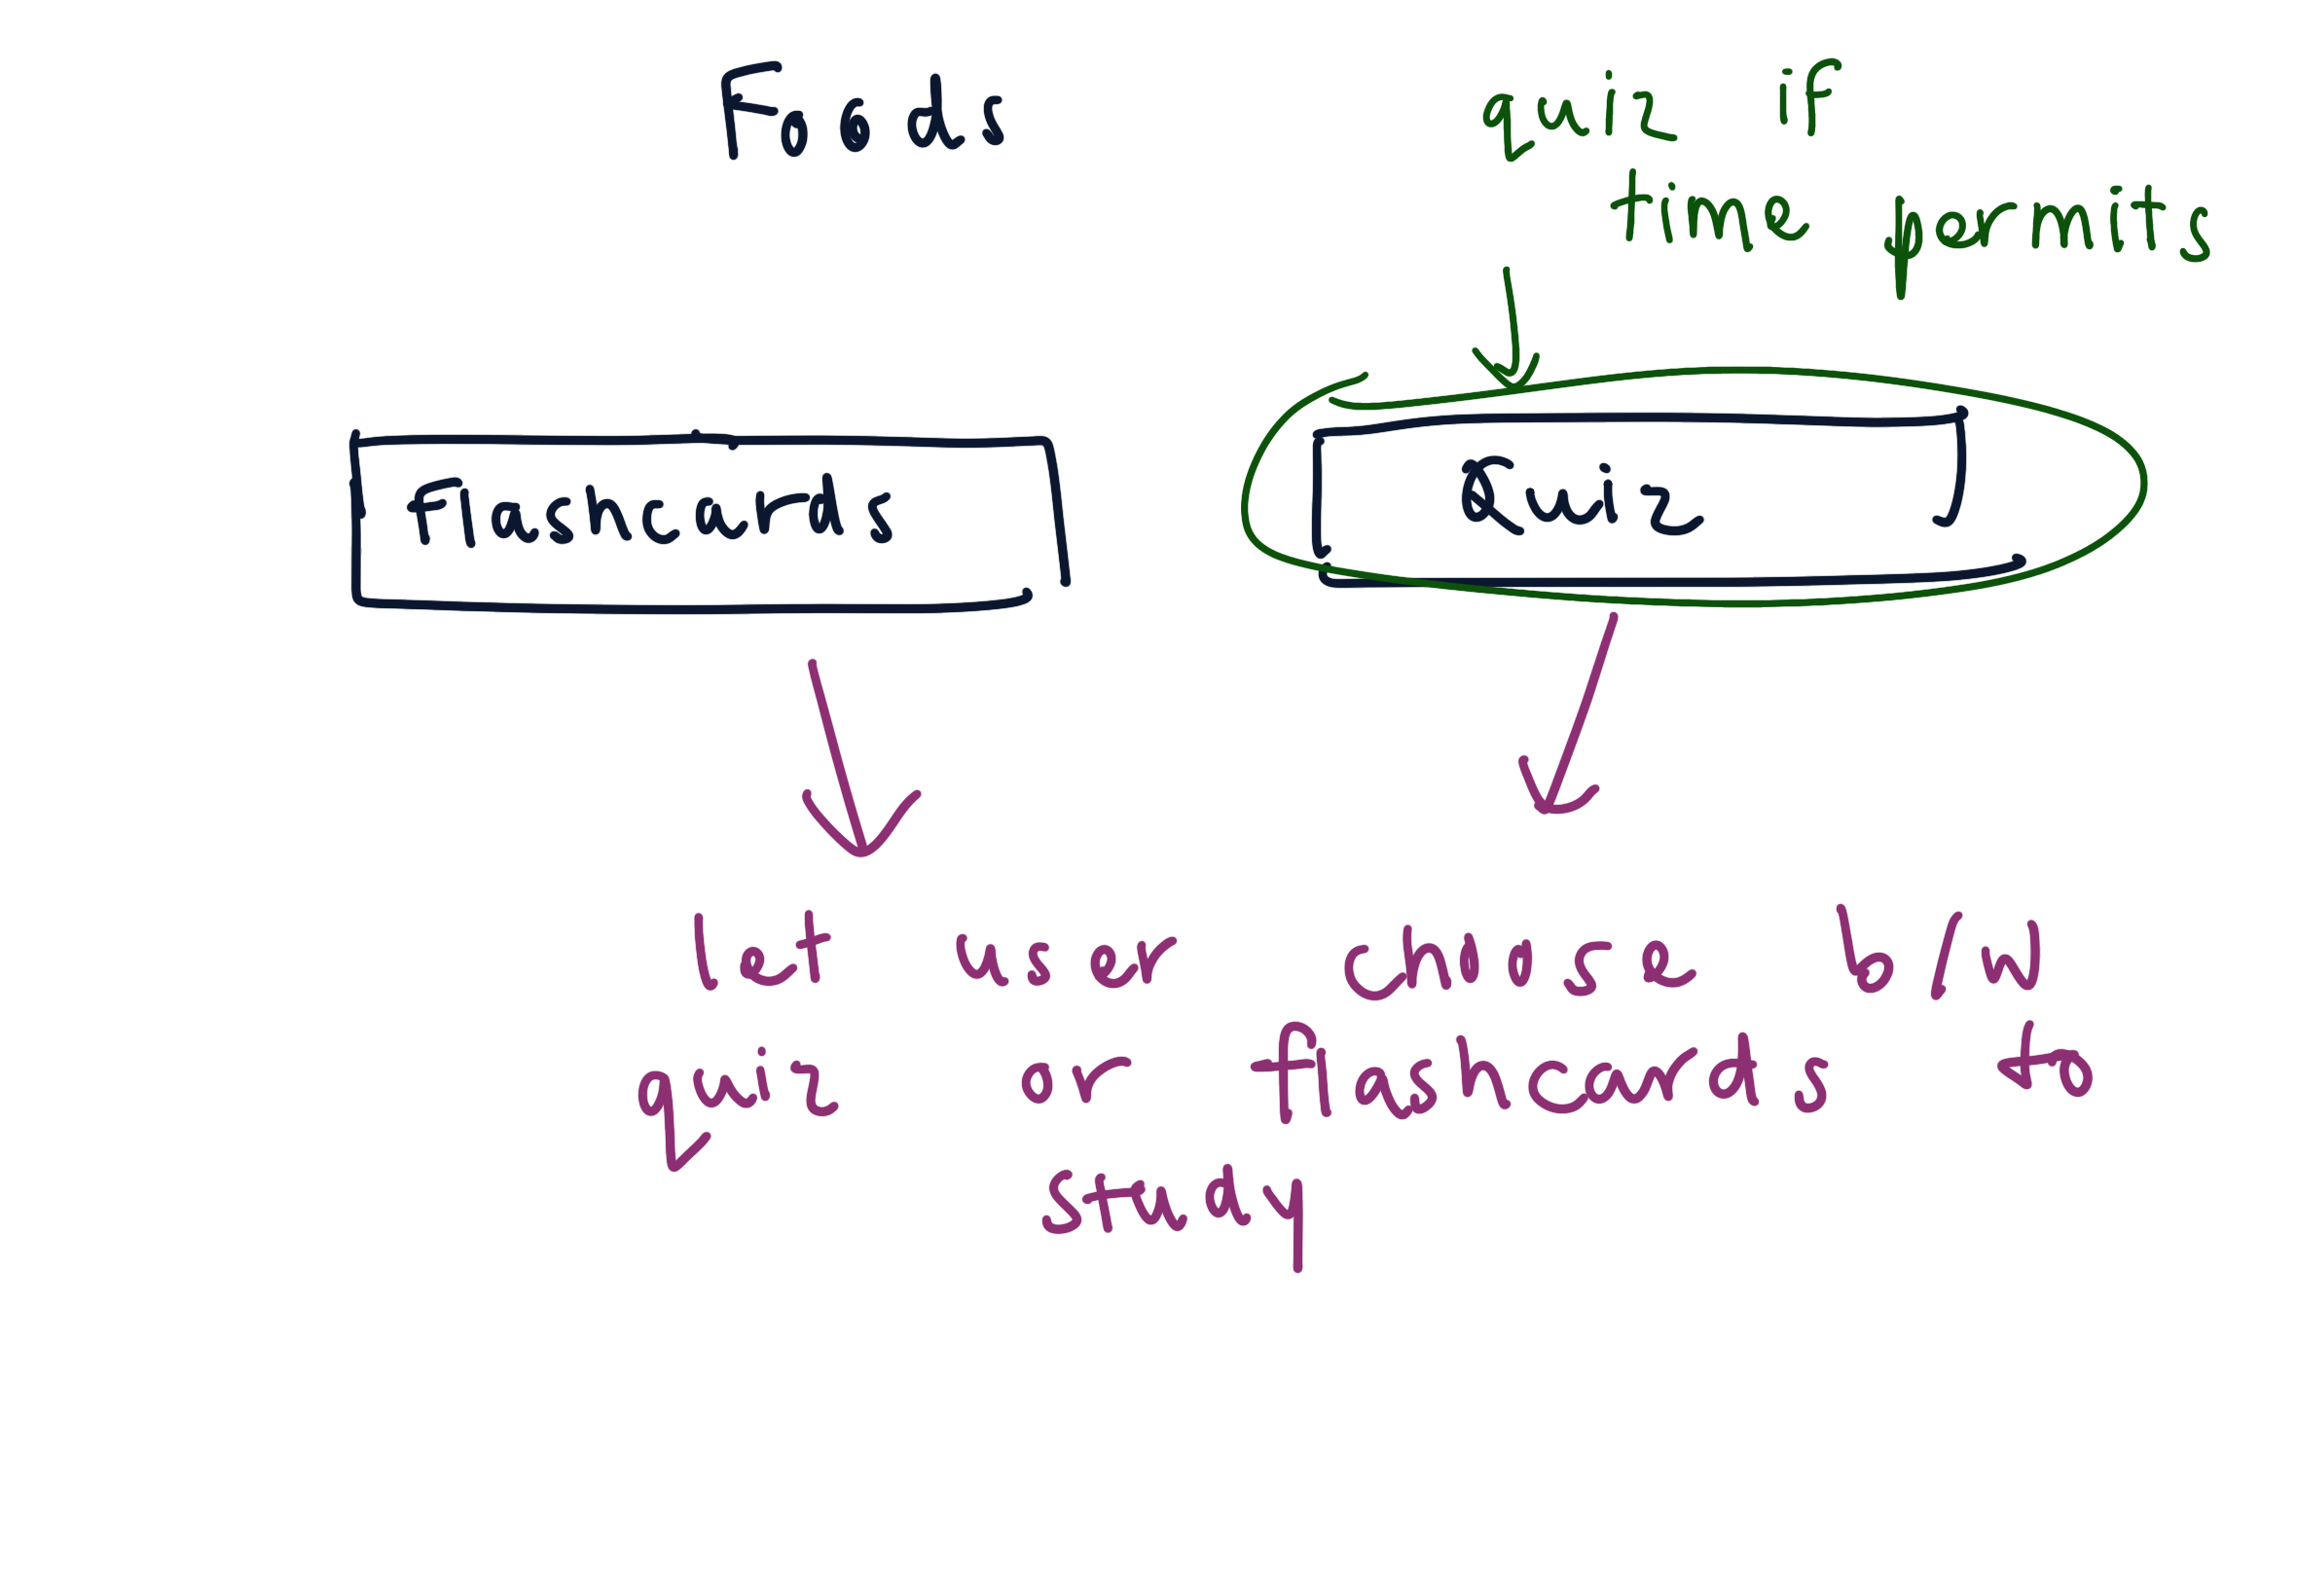 Foods
quiz if
time permits
Flashcards
Quiz
let user choose b/w
quiz or flashcards to
study